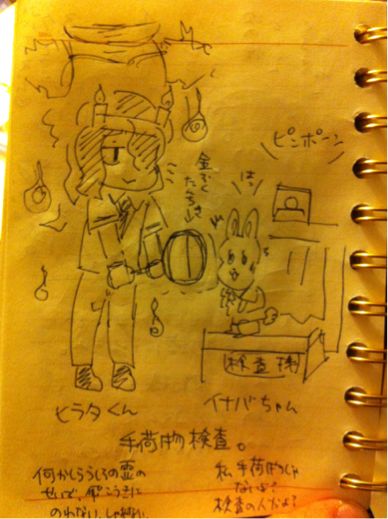 ピンポーン
金ぞく
たんちき
検査機
ヒラタくん
イナバちゃん
手荷物検査。
何かしらうしろの霊の
せいで、飛こうきに
のれない。
私手荷物じゃ
ないよ?
検査の人だよ?